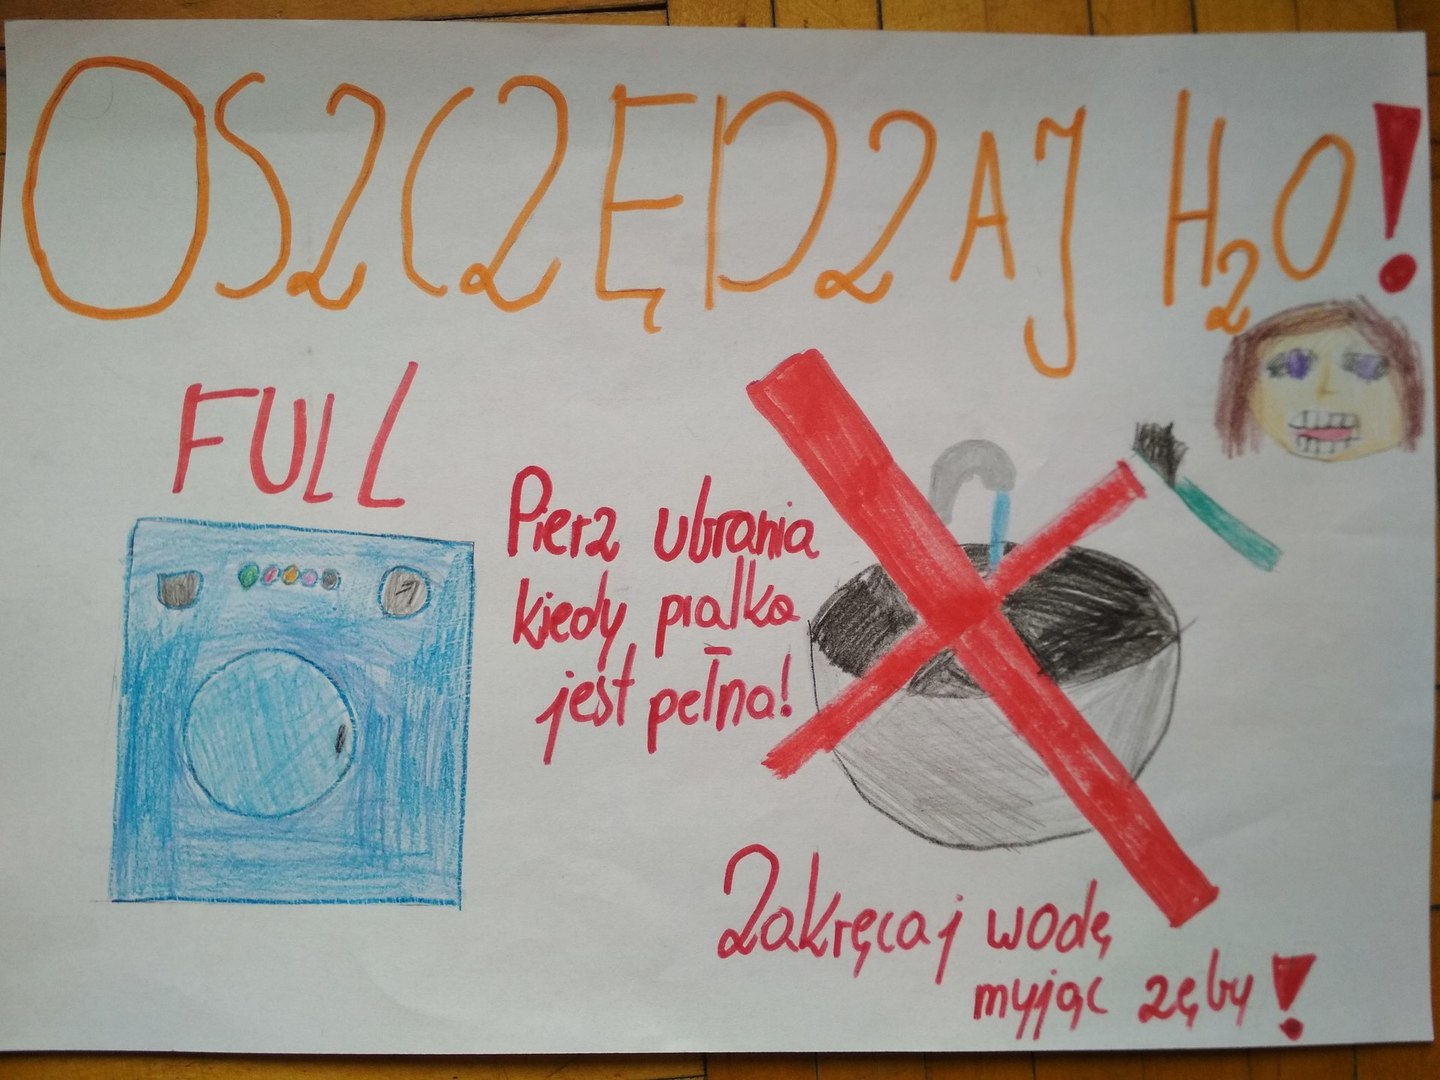 OSZCZĘDZAJ H₂O!
FULL
Pierz ubrania
kiedy pralka
jest pełna!
Zakręcaj wodę
myjąc zęby!